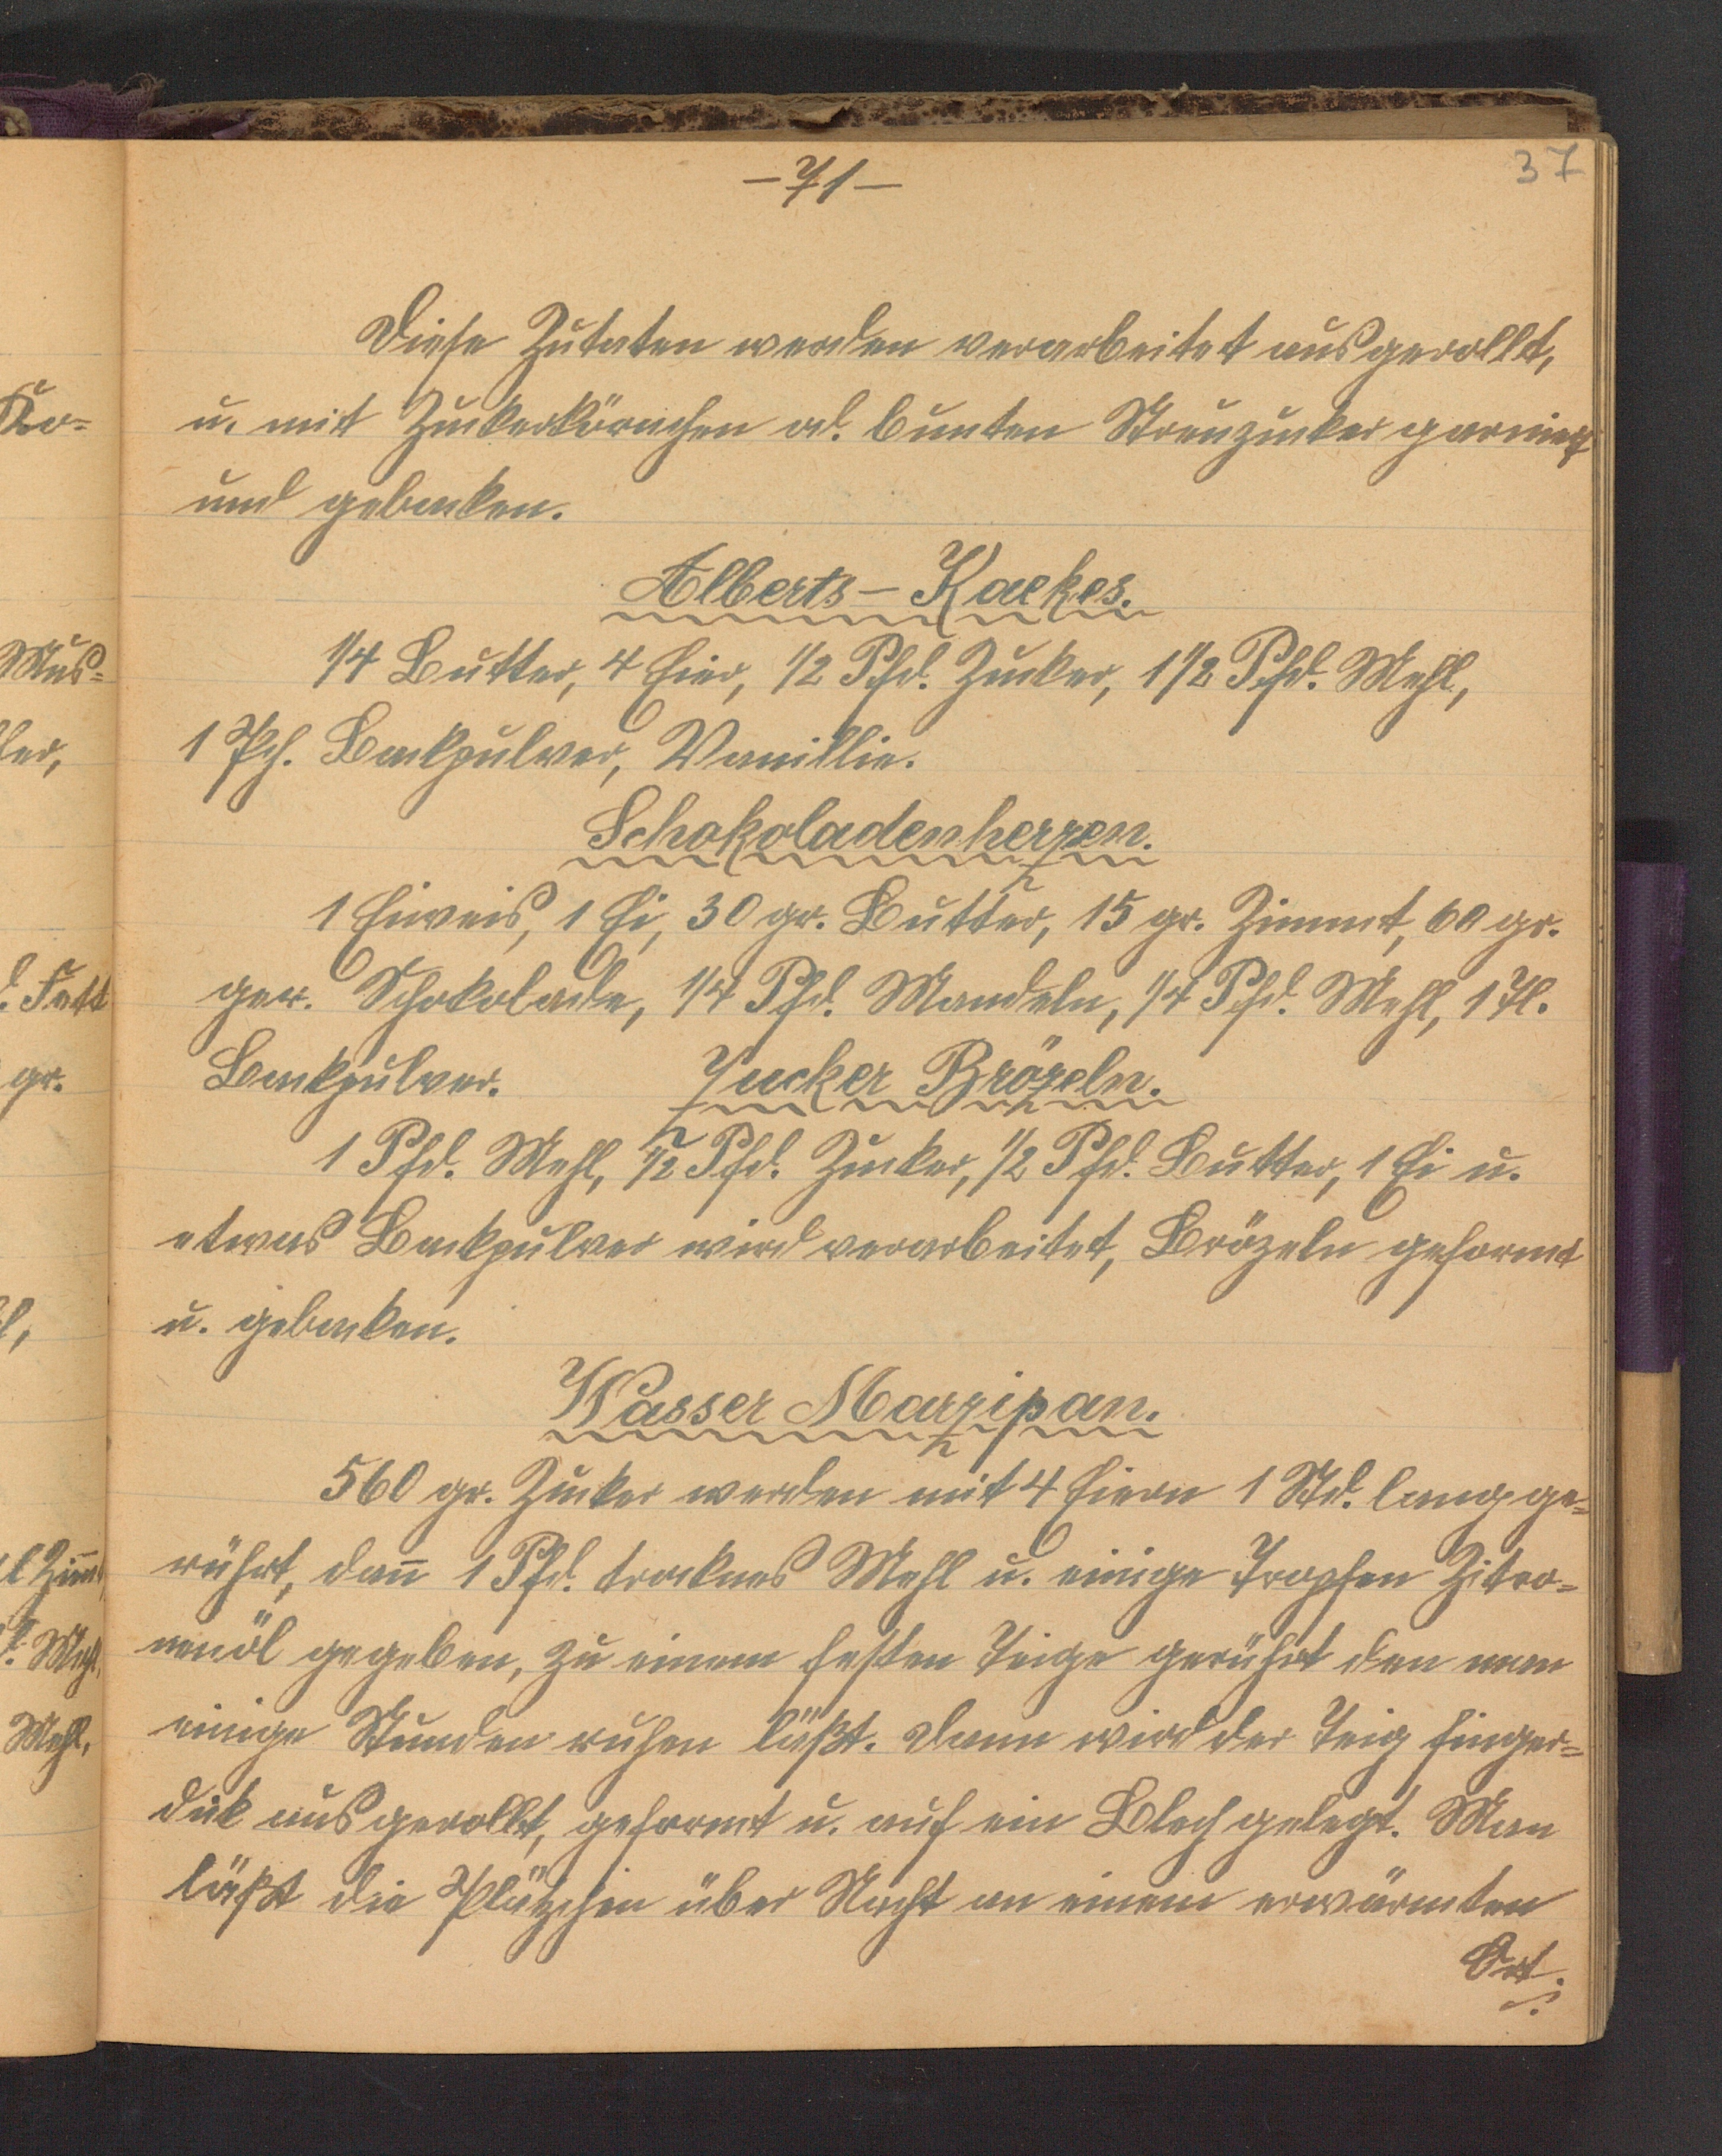 37
-71-
Diese Zutaten werden verarbeitet ausgerollt,
u. mit Zuckerkörnchen od. bunten Streuzucker garniert
und gebacken.
Alberts-Kaekes.
1/4 Butter, 4 Eier, 1/2 Pfd. Zucker, 1 1/2 Pfd. Mehl,
1 Pch. Backpulver, Vanillie.
Schokoladenherzen.
1 Eiweis, 1 Ei, 30 gr. Butter, 15 gr. Zimmt, 60 gr.
ger. Schokolade, 1/4 Pfd. Mandeln, 1/4 Pfd. Mehl, 1 Tl.
Backpulver. Zucker Brözeln.
1 Pfd. Mehl, 1/2 Pfd. Zucker, 1/2 Pfd. Butter, 1 Ei u.
etwas Backpulver wird verarbeitet, Brözeln geformt
u. gebacken.
Wasser Marzipan.
560 gr. Zucker werden mit 4 Eiern 1 Std. lang ge=
rührt, dan̄ 1 Pfd. trocknes Mehl u. einige Tropfen Zitro=
nenöl gegeben, zu einem festen Teige gerührt den man
einige Stunden ruhen läßt. Dann wird der Teig finger=
dick ausgerollt, geformt u. auf ein Blech gelegt. Man
läßt die Plätzchen über Nacht an einem erwärmten
Ort.
Mus=
Fett
gr.
Mehl,
Mehl,